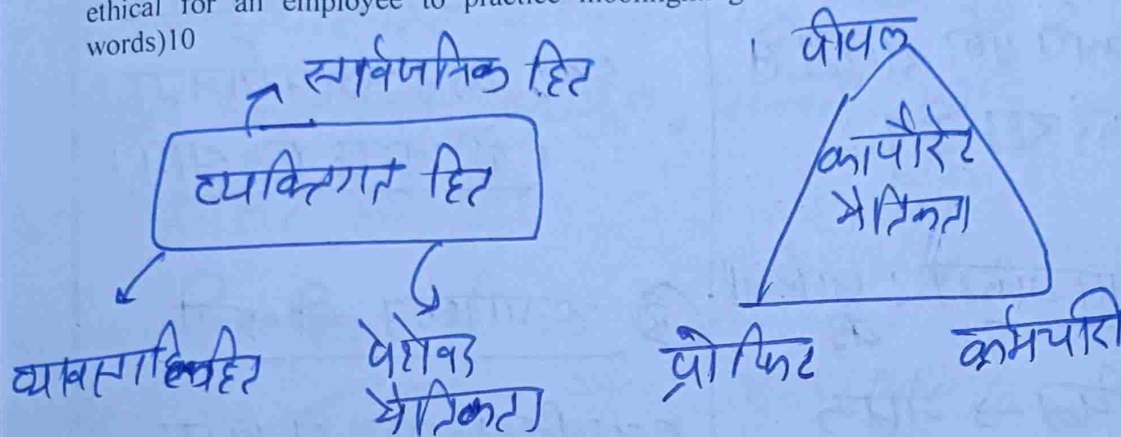 ethical for an employee to practice moonlighting
words)10
सार्वजनिक हित
व्यक्तिगत हित
व्यावसायिक हित
पेशेवर
नैतिकता
पीपल
कार्पोरेट
नैतिकता
प्रोफिट
कर्मचारी